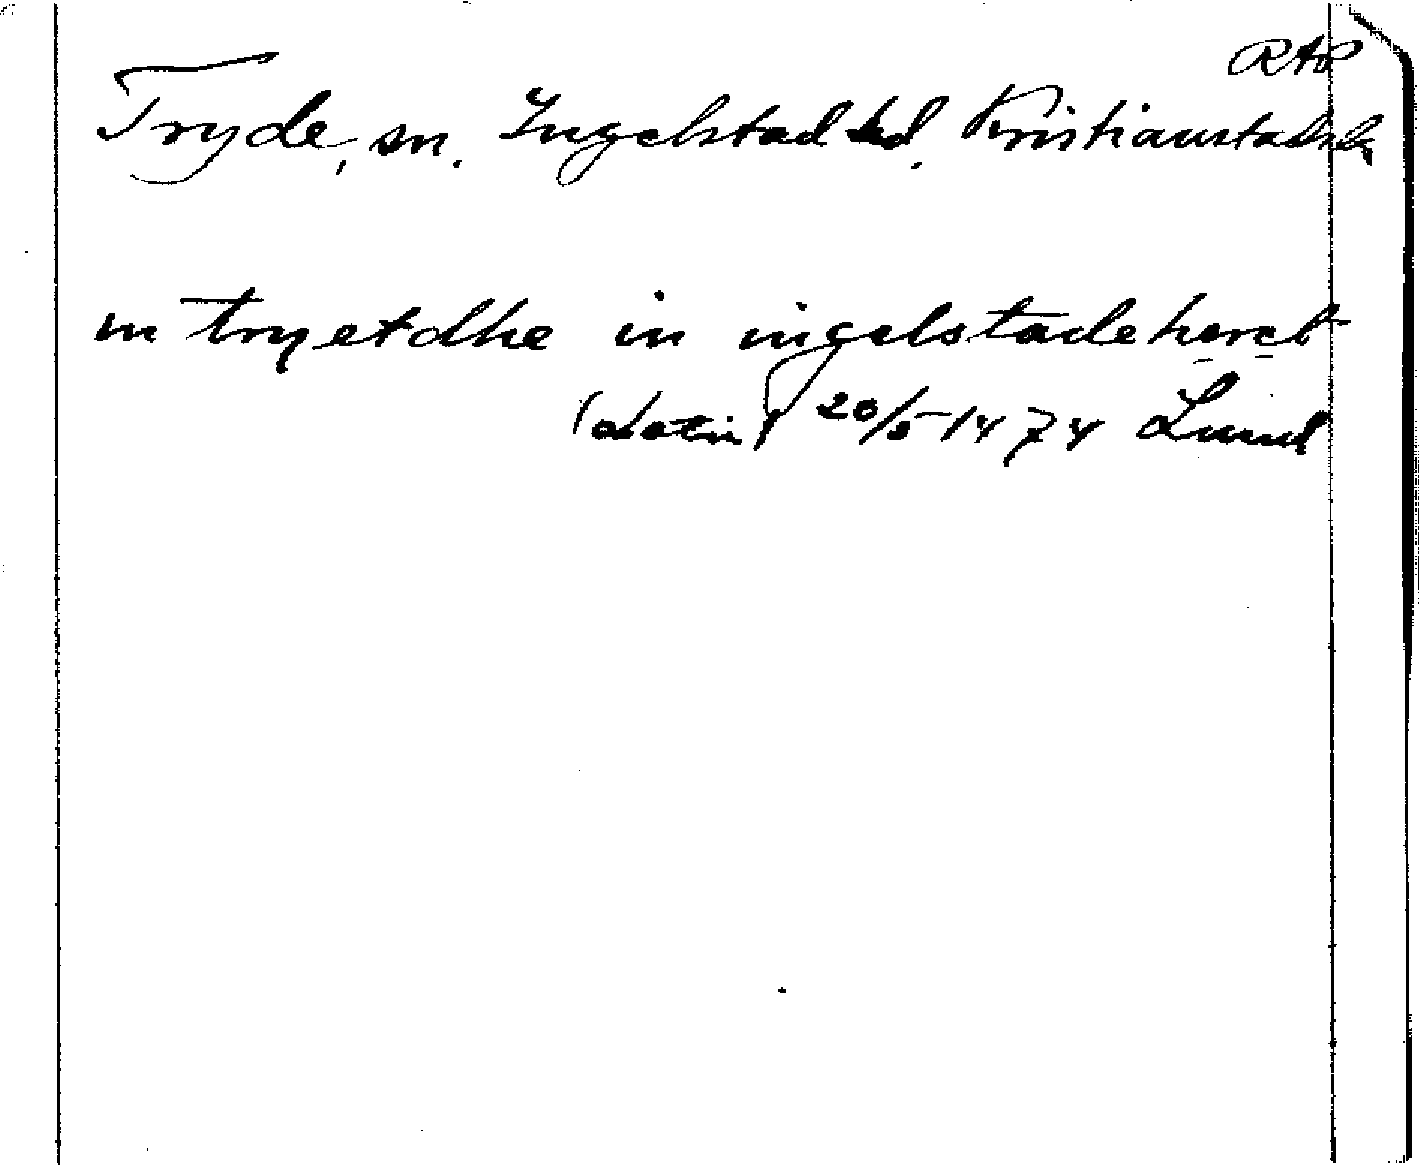 RAP
Tryde, sn. Ingelstad hd. Kristianstads l.
in tryetdhe in ingelstadeheret
(latin) 20/5 1474 Lund